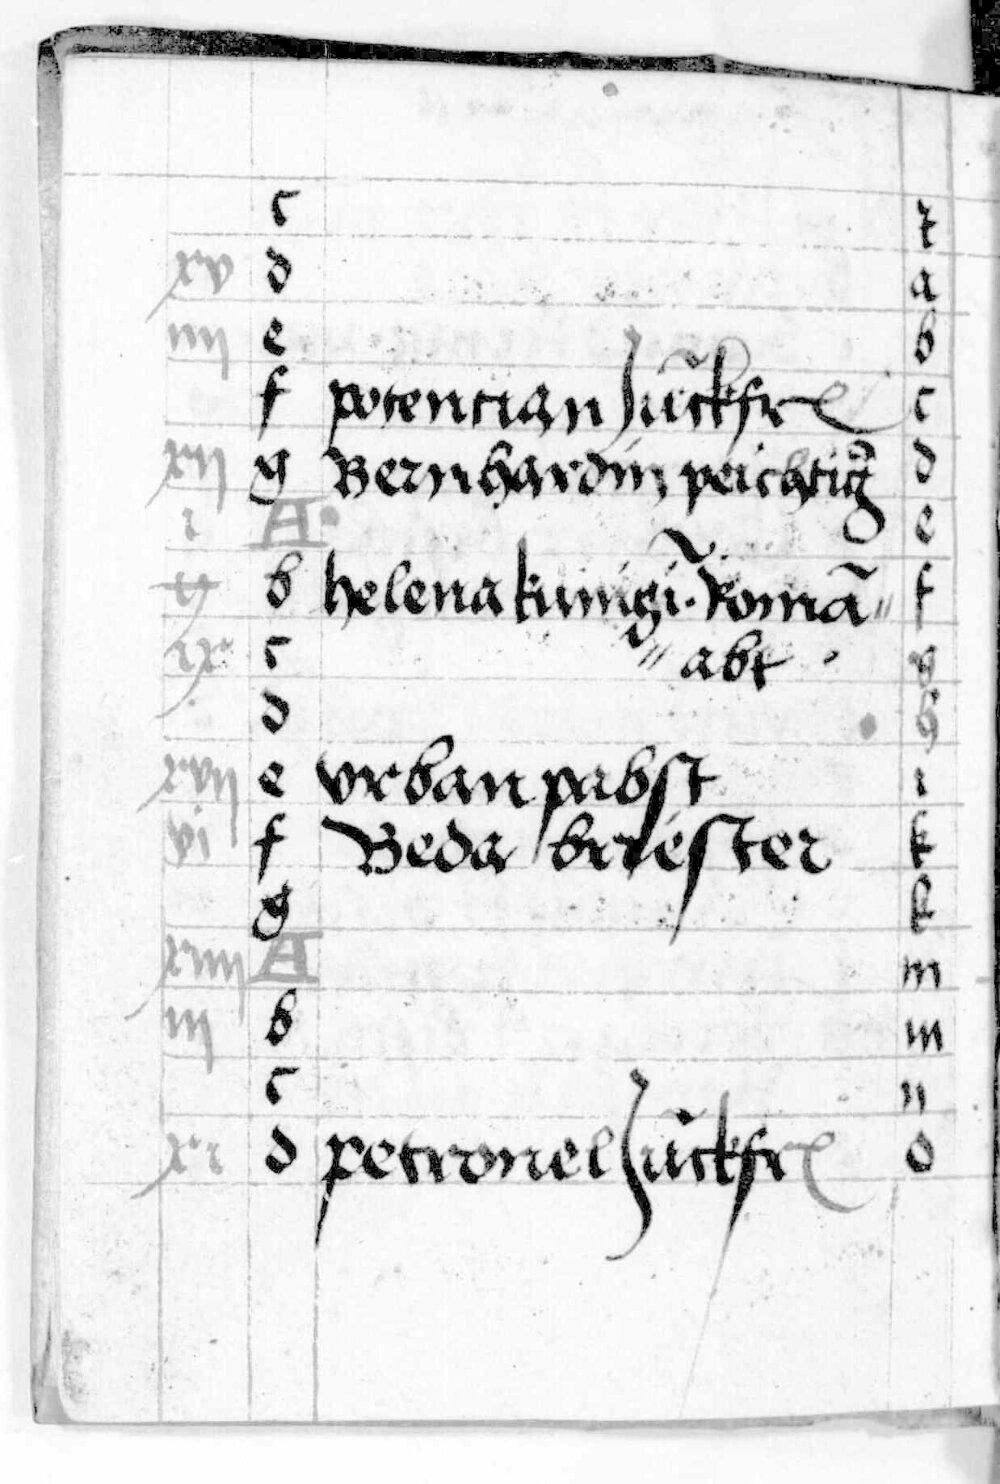 c t
xv d a
iiij e b
f potencian Juckfr c
xij g Bernhardin peichtig d
i A e
ij b helena kunigi. Romā f
ix c abt g
d h
xvij e vrban pabst i
vi f Beda briester k
g k
xiiij A m
iij b m
c n
xi d petronel Juckfr o